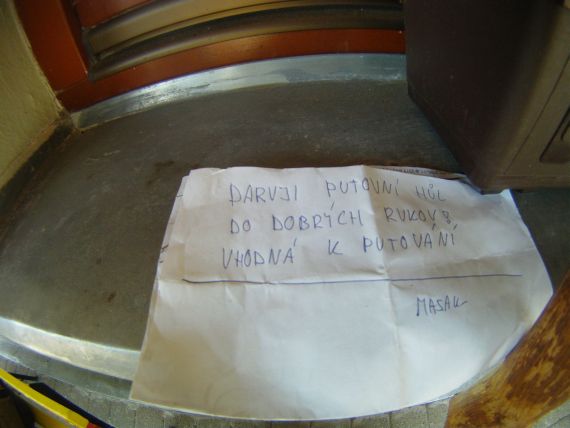 DARUJI PUTOVNÍ HŮL
DO DOBRÝCH RUKOU!
VHODNÁ K PUTOVÁNÍ
MASAK